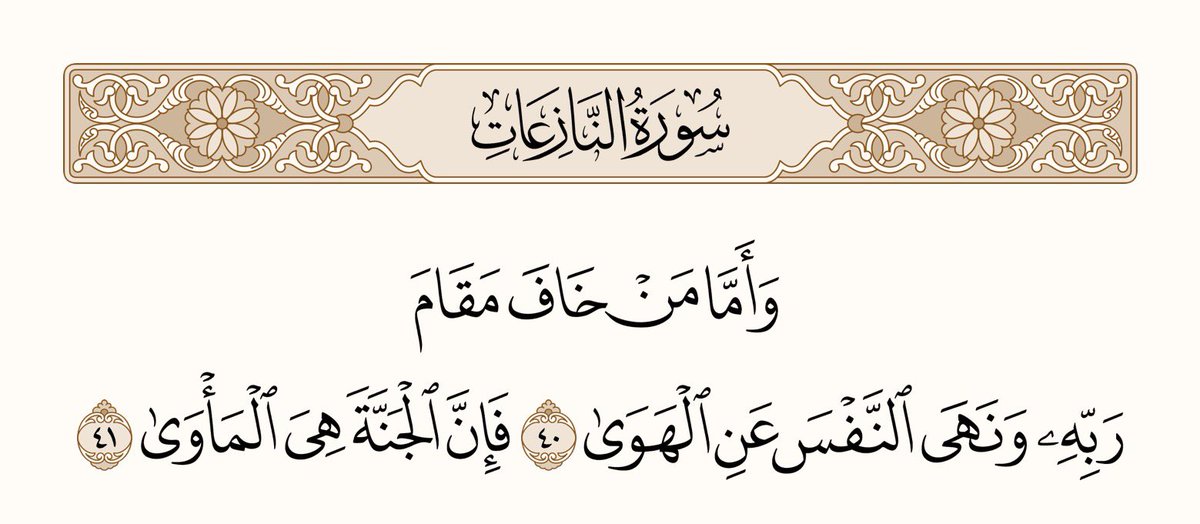 سُورَةُ النَّازِعَاتِ
وَأَمَّا مَنۡ خَافَ مَقَامَ
رَبِّهِۦ وَنَهَى ٱلنَّفۡسَ عَنِ ٱلۡهَوَىٰ ٤٠ فَإِنَّ ٱلۡجَنَّةَ هِيَ ٱلۡمَأۡوَىٰ ٤١